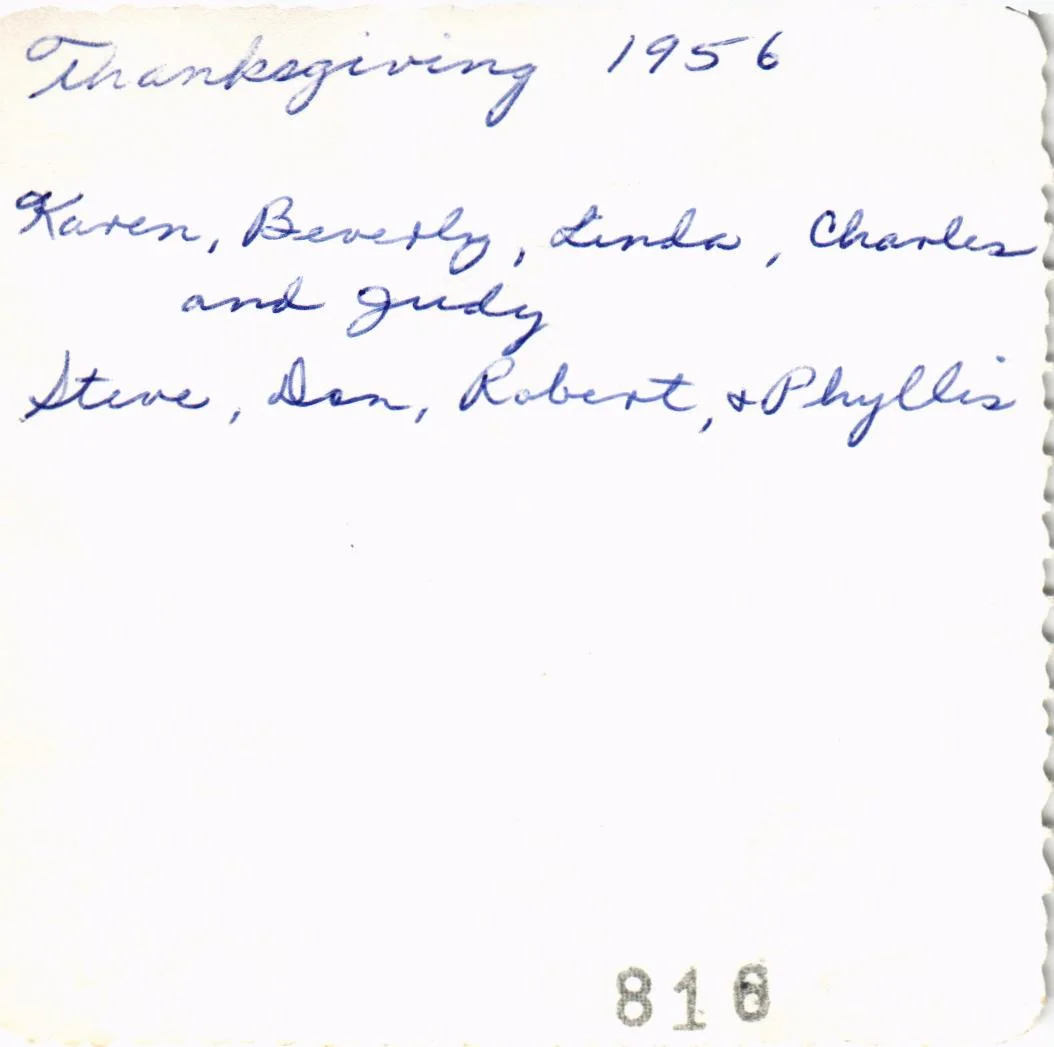 Thanksgiving 1956
Karen, Beverly, Linda, Charles
and Judy
Steve, Don, Robert, & Phyllis